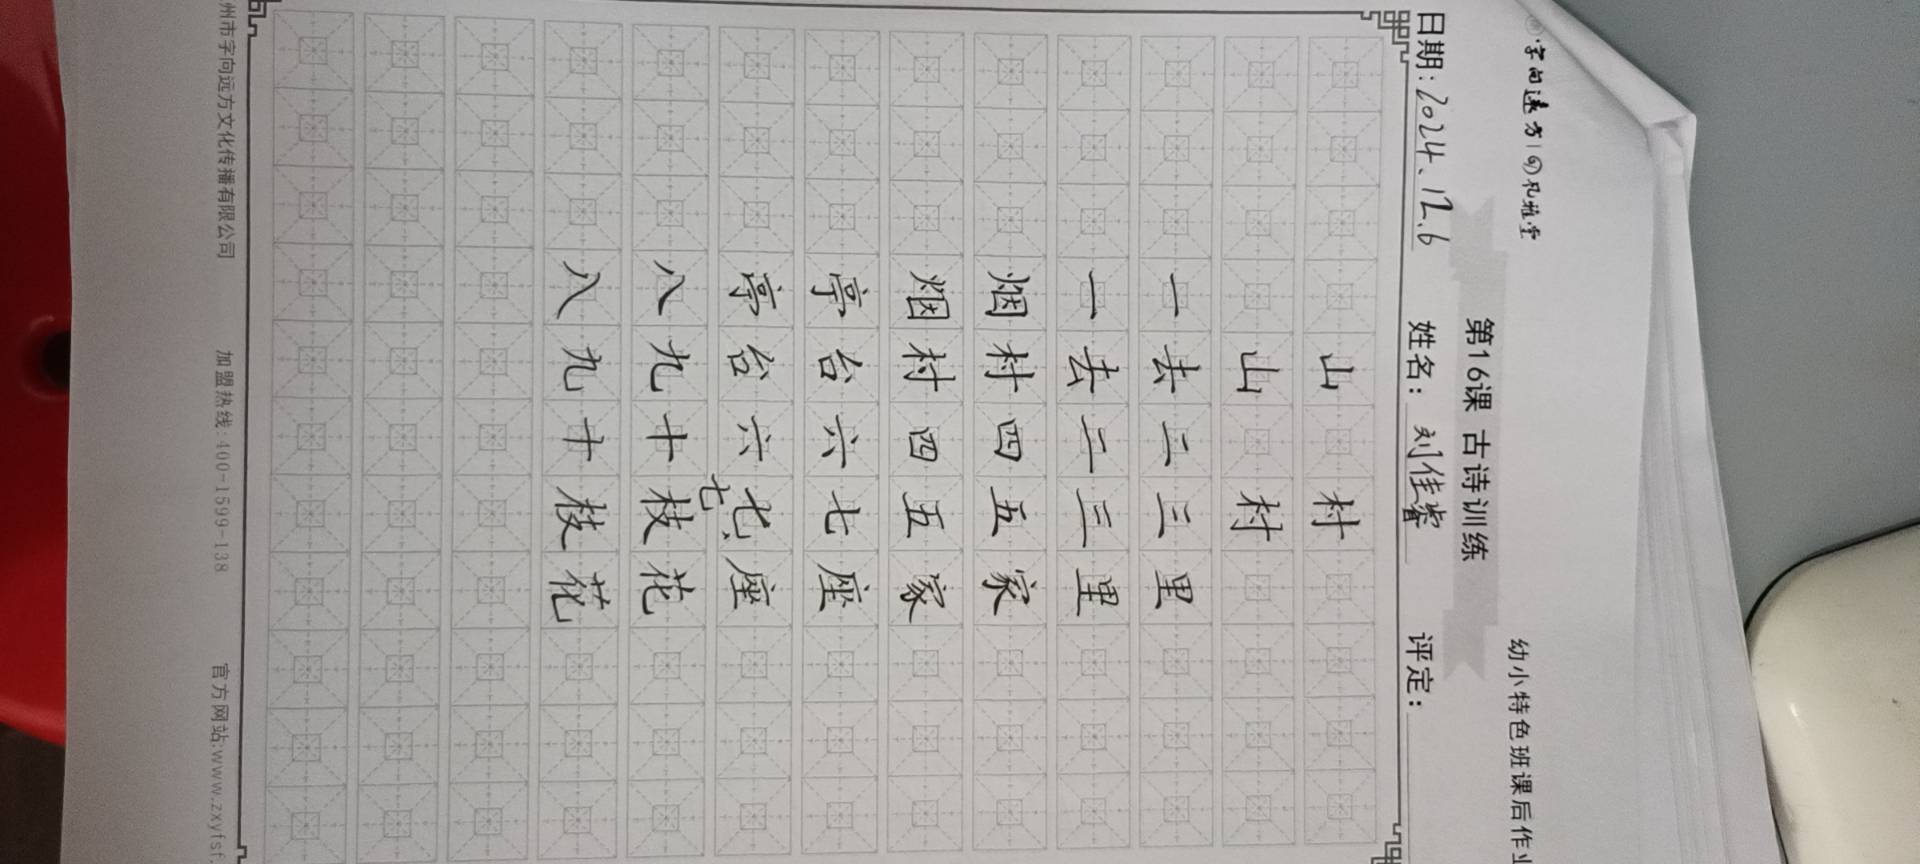 字向远方|孔雅堂
幼小特色班课后作业
第16课 古诗训练
日期:2024、12.6 姓名:刘佳睿 评定:
山村
山村
一去二三里
一去二三里
烟村四五家
烟村四五家
亭台六七座
亭台六七座
七
八九十枝花
八九十枝花
州市字向远方文化传播有限公司 加盟热线:400-1599-138 官方网站:www.zxyfsf.